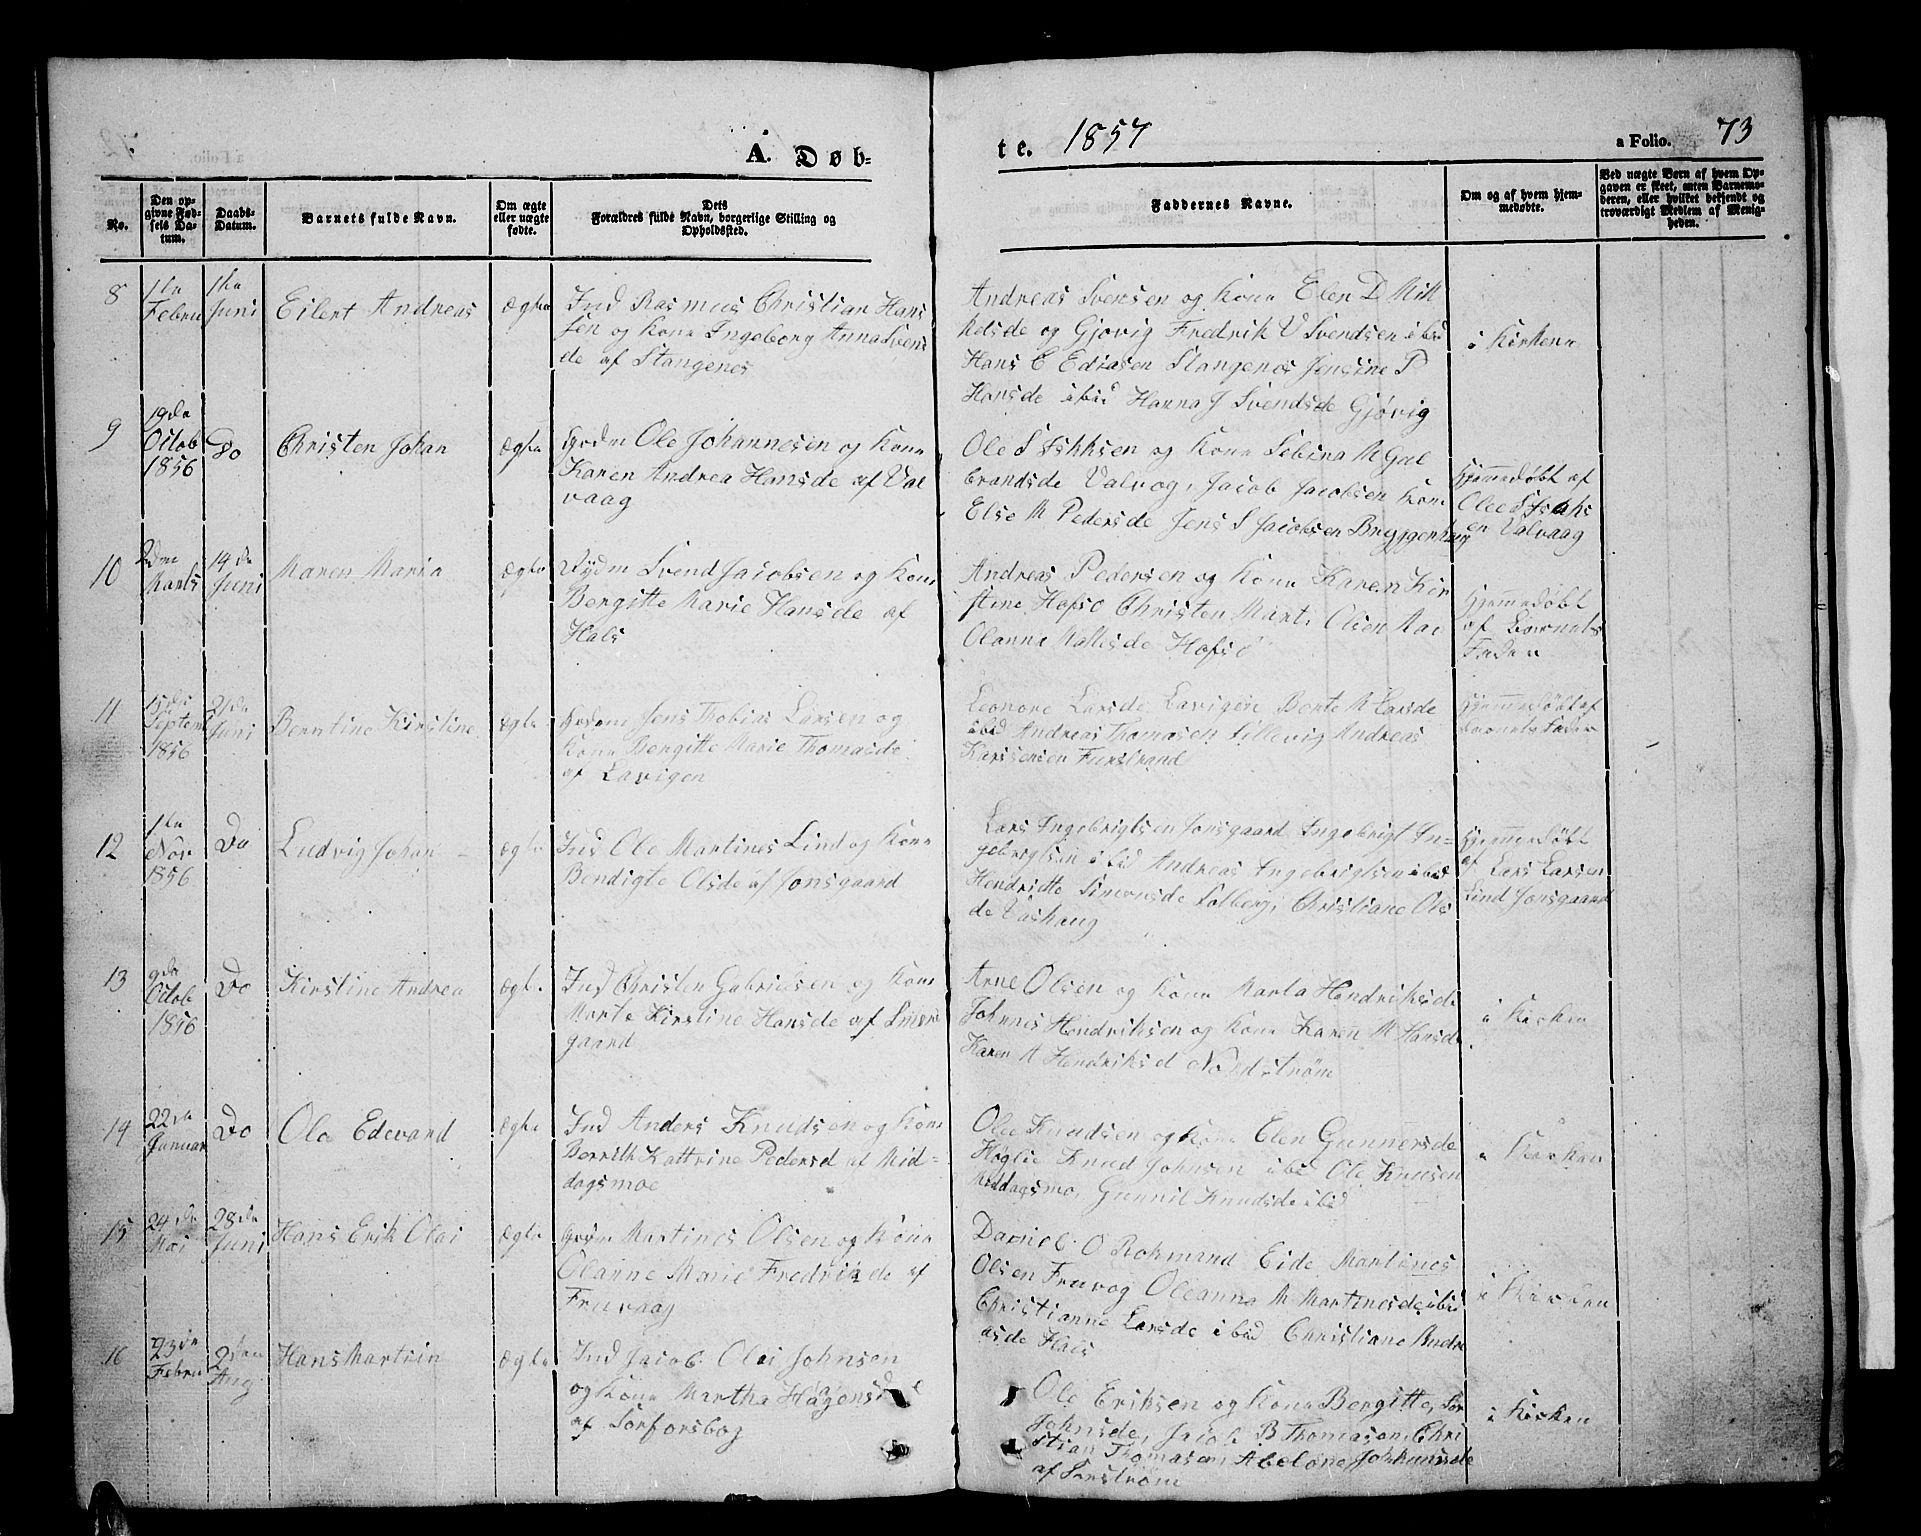 A. Døb-
te. 1857
a Folio. 73
No.
Den op-
givne Fød-
sels Da-
tum.
Daabs-
Datum.
Barnets fulde Navn.
Om ægte
eller uægte
fødte.
Dets
Forældres fulde Navn, borgerlige Stilling og
Opholdsted.
Faddernes Navne.
Om og af hvem hjem-
medøbte.
Ved uægte Børn af hvem Op-
gaven er skeet, enten Barnemo-
deren, eller hvilket bekjendt og
troværdigt Medlem af Menig-
heden.
8
1te
Febru
1te
Juni
Eilert Andreas
ægte
Ind Rasmus Christian Hans
sen og Kone Ingeborg Anna Svens
de af Stangenes
Andreas Svensen og Kone Elen D Mik
kelsde og Gjøvig Fredrik V Svendsen ibid
Hans E Edissen Stangenes Jensine P
Hansde ibid Hanna J Svendsde Gjøvig
i Kirken
9
19de
Octob
1856
Do
Christen Johan
ægte
Ole Johannesen og Kone
Karen Andrea Hansde af Val
vaag
Ole S Iskksen og Kone Sebina M Gul
brandsde Valvog, Jacob Jacobsen Kone
Else M Pedersde Jens S Jacobsen Bryggenhaug
Hjemmedøbt af
Olee S Isaks
en Valvaag
10
Marts
14de
Juni
Maren Maria
ægte
Svend Jacobsen og Kone
Bergitte Marie Hansde af
Hals
Andreas Pedersen og Kone Karen Kir
stine Hofsø Christen Mart. Olsen
Olanna Hofsø
Hjemmedøbt
af Barnets
Fader
11
15de
Septem
1856
21de
Juni
Berntine Kirstine
ægte
Jens Thobias Larsen og
Kone Bergitte Marie Thomasde
af Lavigen
Leonore Larsde Lavigen Berte M Larsde
ibid Andreas Thomasen Lillevig Andreas
Furstrand
Hjemmedøbt af
barnets Fader
12
1te
Nov
1856
Do
Ludvig Johan
ægte
Ind Ole Martines Lind og Kone
Bendigte Olsde af Jonsgaard
Lars Ingebrigtsen Jonsgaard Ingebrigt In-
gebrigtsen ibid Andreas Ingebrigtsen ibid
Hendritte Simonsde Solberg, Christiane Ols
de Vashaug
Hjemmedøbt
af
Lars Larsen
Lind Jonsgaard
13
9de
Octob
1856
Do
Kirstine Andrea
ægte
Ind Christen Gabrielsen og Kone
Marte Kirstine Hansde af
gaard
Arne Olsen og Kone Marta Hendriksde
Johnnes Hendriksen og Kone Karen M Hansde
Karen A Hendriksd Nordstrøm
i Kirken
14
22de
Januar
Do
Ole Edevard
ægte
Ind Anders Knudsen og Kone
Berrith Kattrine Pedersd af Mid-
dagsmoe
Olee Knudsen og Kone Elen Gunnersde
Høglie Knud Johnsen ibid Ole Knusen
Middagsmo, Gunnil Knudsde ibid
i Kirken
15
24de
Mai
28de
Juni
Hans Erik Olai
ægte
Martines Olsen og Kone
Olanne Marie Fredrikde af
Fruvaag
Daniel O Rohmand Eide Martines
Olsen Fruvog Oleanna M Martinesde ibid
Christianne Larsde ibid Christiane Andre
asde Hals
i Kirken
16
23de
Febru
2den
Aug
Hans Martin
ægte
Ind Jacob Olai Johnsen
og Kone Martha Hagensd
af Sørforsbog
Ole Eriksen og Kone Bergitte
Johnsde, Jacob B Thomasen, Chri
stian Thomasen, Abelone Johannsde
af Sørstrøm
i Kirken